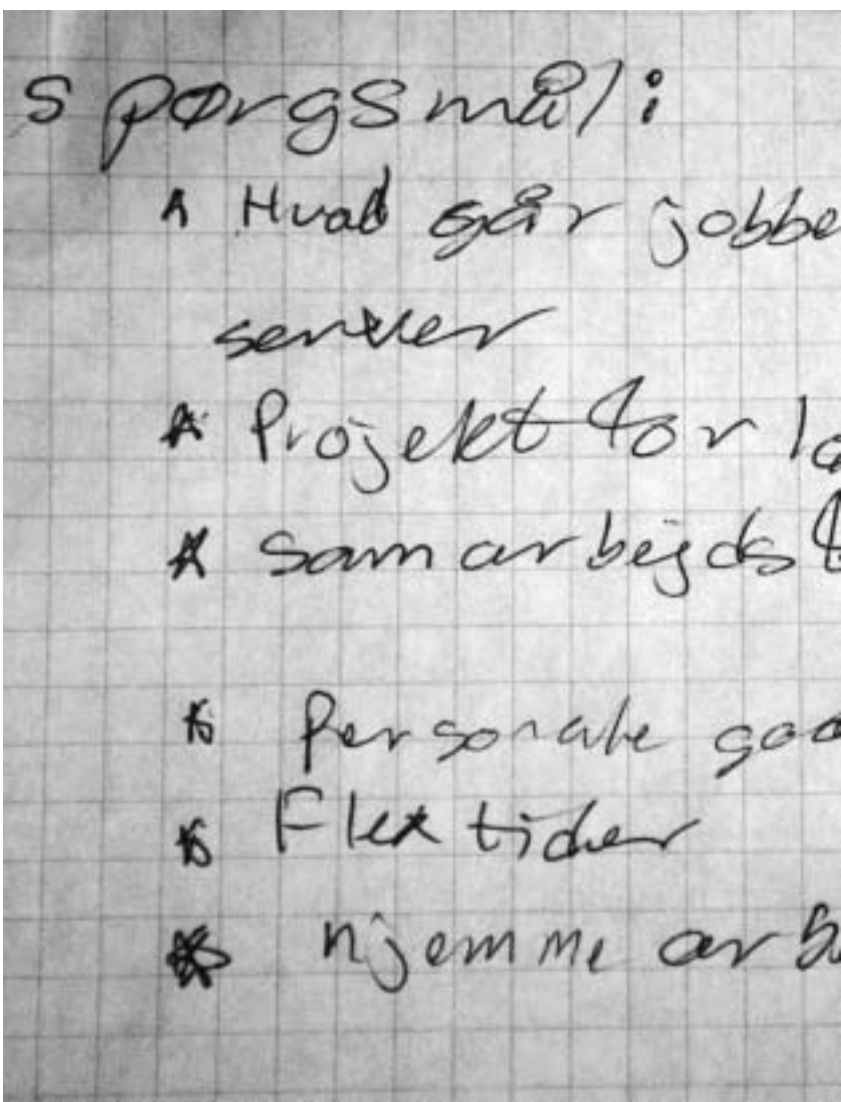 spørgsmål:
* Hvad går jobbe
server
* Projekt for la
* samarbejds f
* Personale god
* Flex tider
* hjemme arb